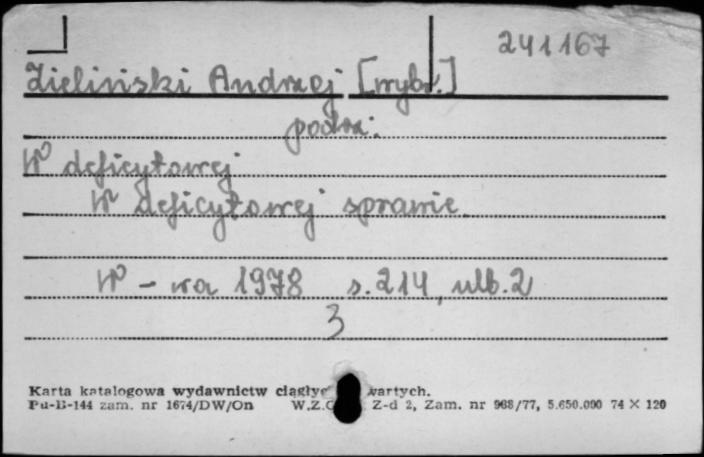 241167
Zieliński Andrzej [wybr.]
podz.
W deficytowej
W deficytowej sprawie.
W-wa 1978 s.214, ulb.2
3
Karta katalogowa wydawnictw ciągłyc wartych.
Pu-B-144 zam. nr 1674/DW/On W.Z.G Z-d 2, Zam. nr 968/77, 5.650.000 74 X 120